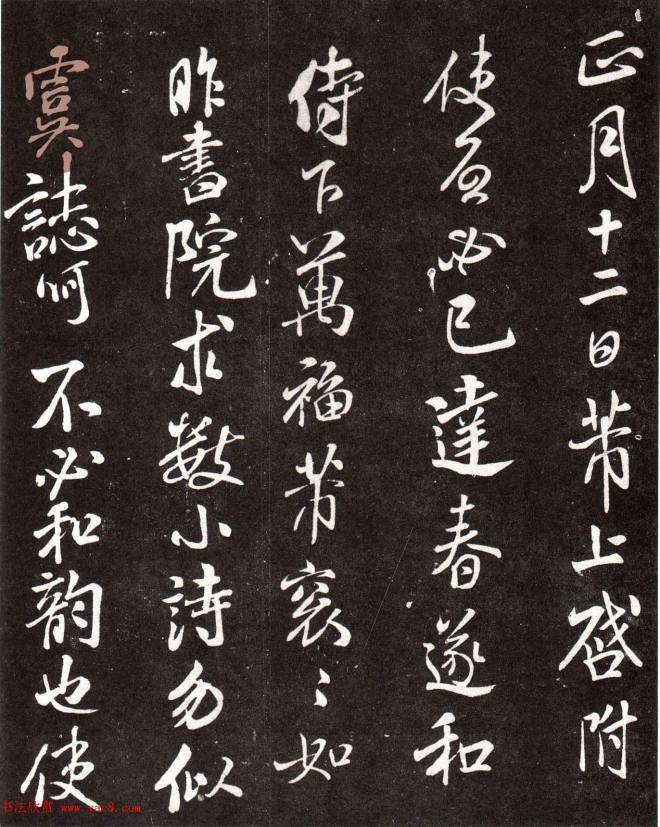 正月十二日芾上啓附
使爲必已達春遂和
侍下萬福芾衮〻如
昨書院求數小詩勿似
虞誌呵 不必和韵也使
书法欣赏 www.yac8.com